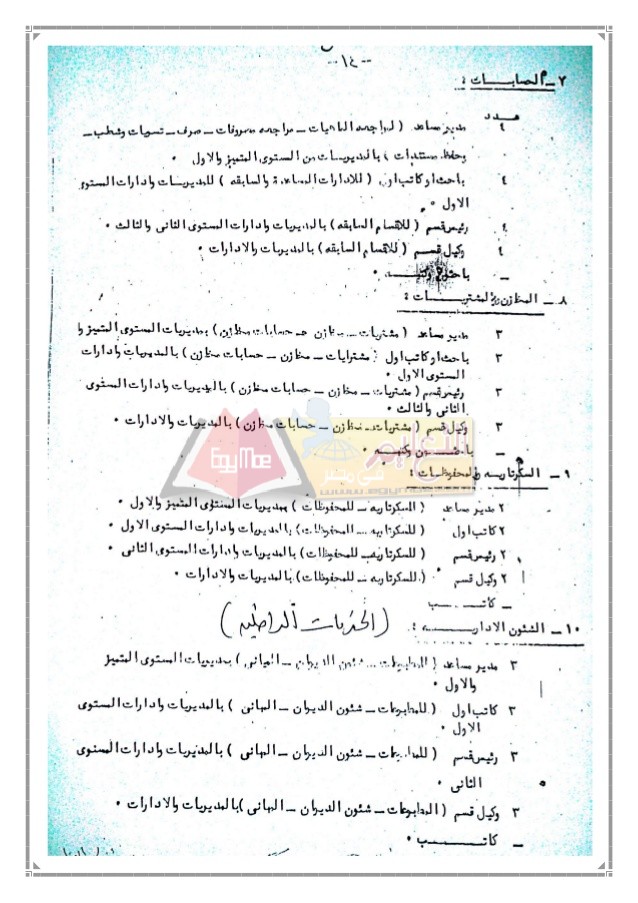 -١٤-
٧ـ الحسابات :
عدد
٤ مدير مساعد ( لمراجعه الماهيات ـ مراجعه مصروفات ـ صرف ـ تسويات وشطب ـ
وحفظ مستندات ) بالمديريات من المستوى المتميز والاول .
٤ باحث او كاتب اول ( للادارات السابقه ) للمديريات وادارات المستوى
الاول .
٤ رئيس قسم ( للاقسام السابقه ) بالمديريات وادارات المستوى الثانى والثالث .
٤ وكيل قسم ( للاقسام السابقه ) بالمديريات والادارات .
ـ باحثون وكتبـــه .
٨ ـ المخازن والمشتريـــات :
٣ مدير مساعد ( مشتريات ـ مخازن ـ حسابات مخازن ) بمديريات المستوى المتميز وا
٣ باحث او كاتب اول ( مشترايات ـ مخازن ـ حسابات مخازن ) بالمديريات وادارات
المستوى الاول .
٣ رئيس قسم ( مشتريات ـ مخازن ـ حسابات مخازن ) بالمديريات وادارات المستوى
الثانى والثالث .
٣ وكيل قسم ( مشتريات ـ مخازن ـ حسابات مخازن ) بالمديريات والادارات .
ـ باحثـــون وكتبـــه .
التعليم
فى مصر
EgyMoe
٩ ـ السكرتاريـــه والمحفوظـــات :
٢ مدير مساعد ( للسكرتاريه ـ للمحفوظات ) بمديريات المستوى المتميز والاول .
٢ كاتب اول ( للسكرتاريه ـ للمحفوظات ) بالمديريات وادارات المستوى الاول .
٢ رئيس قسم ( للسكرتاريه ـ للمحفوظات ) بالمديريات وادارات المستوى الثانى .
٢ وكيل قسم ( للسكرتاريه ـ للمحفوظات ) بالمديريات والادارات .
ـ كاتـــــب
١٠ ـ الشئون الاداريـــه : ( الخدمات )
٣ مدير مساعد ( المطبوعات ـ شئون الديوان ـ المبانى ) بمديريات المستوى المتميز
والاول .
٣ كاتب اول ( للمطبوعات ـ شئون الديوان ـ المبانى ) بالمديريات وادارات المستوى
الاول .
٣ رئيس قسم ( للمطبوعات ـ شئون الديوان ـ المبانى ) بالمديريات وادارات المستوى
الثانى .
٣ وكيل قسم ( المطبوعات ـ شئون الديوان ـ المبانى ) بالمديريات والادارات .
ـ كاتـــــب .